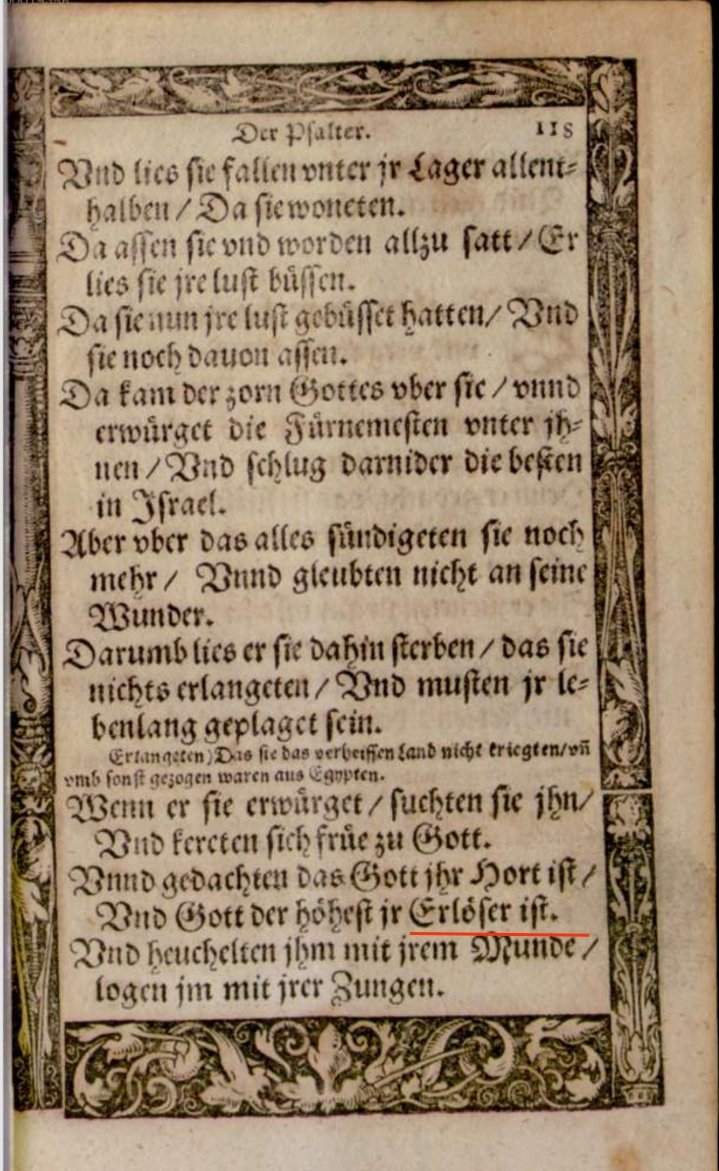 Der Psalter. 118
Vnd lies sie fallen vnter jr Lager allent⸗
halben / Da sie woneten.
Da assen sie vnd worden allzu satt / Er
lies sie jre lust büssen.
Da sie nun jre lust gebüsset hatten / Vnd
sie noch dauon assen.
Da kam der zorn Gottes vber sie / vnnd
erwürget die Fürnemesten vnter jh⸗
nen / Vnd schlug darnider die besten
in Jsrael.
Aber vber das alles sündigeten sie noch
mehr / Vnnd gleubten nicht an seine
Wunder.
Darumb lies er sie dahin sterben / das sie
nichts erlangeten / Vnd musten jr le⸗
benlang geplaget sein.
Erlangeten) Das sie das verheissen Land nicht kriegten / vñ
vmb sonst gezogen waren aus Egypten.
Wenn er sie erwürget / suchten sie jhn /
Vnd kereten sich früe zu Gott.
Vnnd gedachten das Gott jhr Hort ist /
Vnd Gott der höhest jr Erlöser ist.
Vnd heuchelten jhm mit jrem Munde /
logen jm mit jrer Zungen.